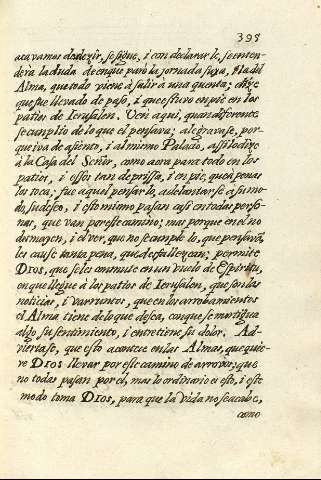 398
aca vamos de dezir, se sigue, i con declararle, se enten-
derà la duda de en que parò la jornada suya, i la del
Alma, que todo viene à salir à una quenta; dize
que fue llevado de paso, i que estuvo en pie en los
patios de Ierusalen. Ven aqui, quan diferente
se cunplio de lo que el pensava; alegravase, por-
que iva de asiento, i al mismo Palacio, assi lo dize
à la Casa del Señor, como aora para todo en los
patios, i essos tan de priessa, i en pie, que à penas
los toca; fue aquel pensarlo, adelantarse à su mo-
do, su deseo, i esto mismo pasan casi en todas perso-
nas, que van por este camino; mas porque en el no
desmayen, i el ver, que no se cunple lo, que pensavã,
les cause tanta pena, que desfallezcan; permite
DIOS, que se les conmute en un vuelo de Espiritu,
en que llegue à los patios de Ierusalen, que son las
noticias, i varruntos, que en los arrobamientos
el Alma tiene de lo que desea, con que se mortigua
algo su sentimiento, i entretiene su dolor. Ad-
viertase, que esto acontece en las Almas, que quie-
re DIOS llevar por este camino de arrovos; que
no todas pasan por el, mas lo ordinario es esto, i este
modo toma DIOS, para que la vida no se acabe,
como